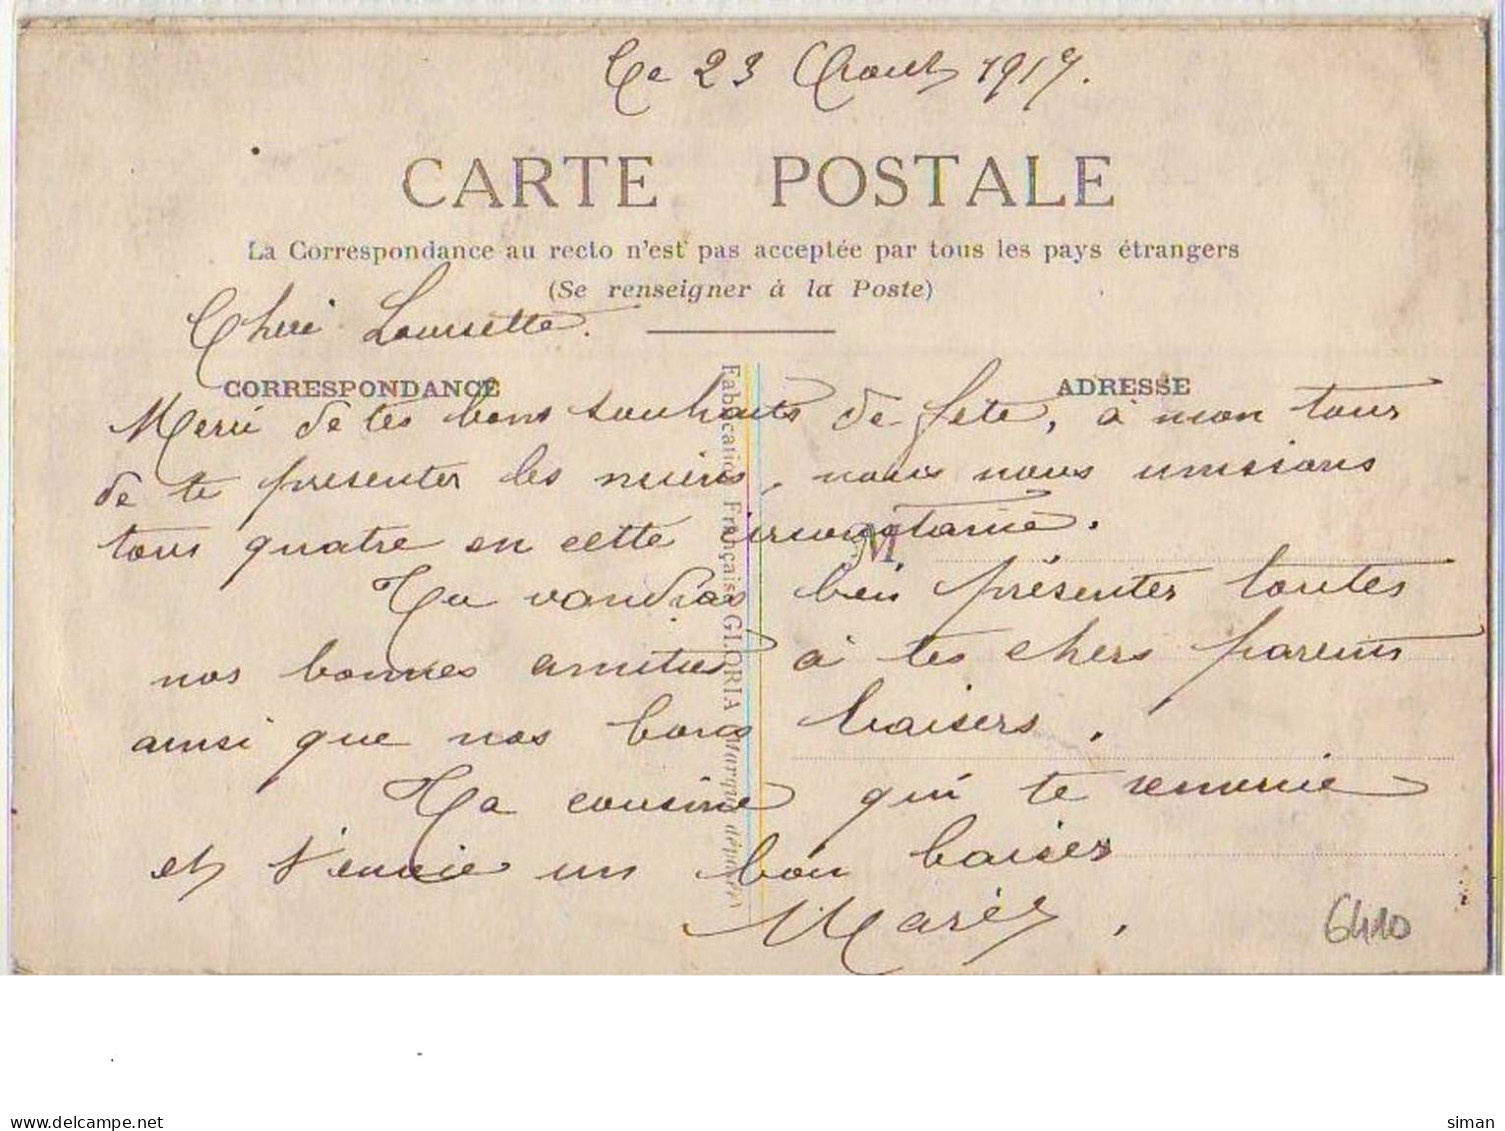 Le 23 Aout 1917.
CARTE POSTALE
La Correspondance au recto n'est pas acceptée par tous les pays étrangers
(Se renseigner à la Poste)
Cheri Lousette.
CORRESPONDANCE
ADRESSE
Merci de tes bons souhaits de fete, à mon tour
de te presenter les miens, nous nous unissons
tous quatre en cette
M
Tu voudras bien présenter toutes
nos bonnes amities à tes chers parents
ainsi que nos bons baisers.
Ta cousine qui te remercie
et t'envoie un bon baiser
Fabrication Française GLORIA (Marque déposée)
6410
delcampe.net
siman